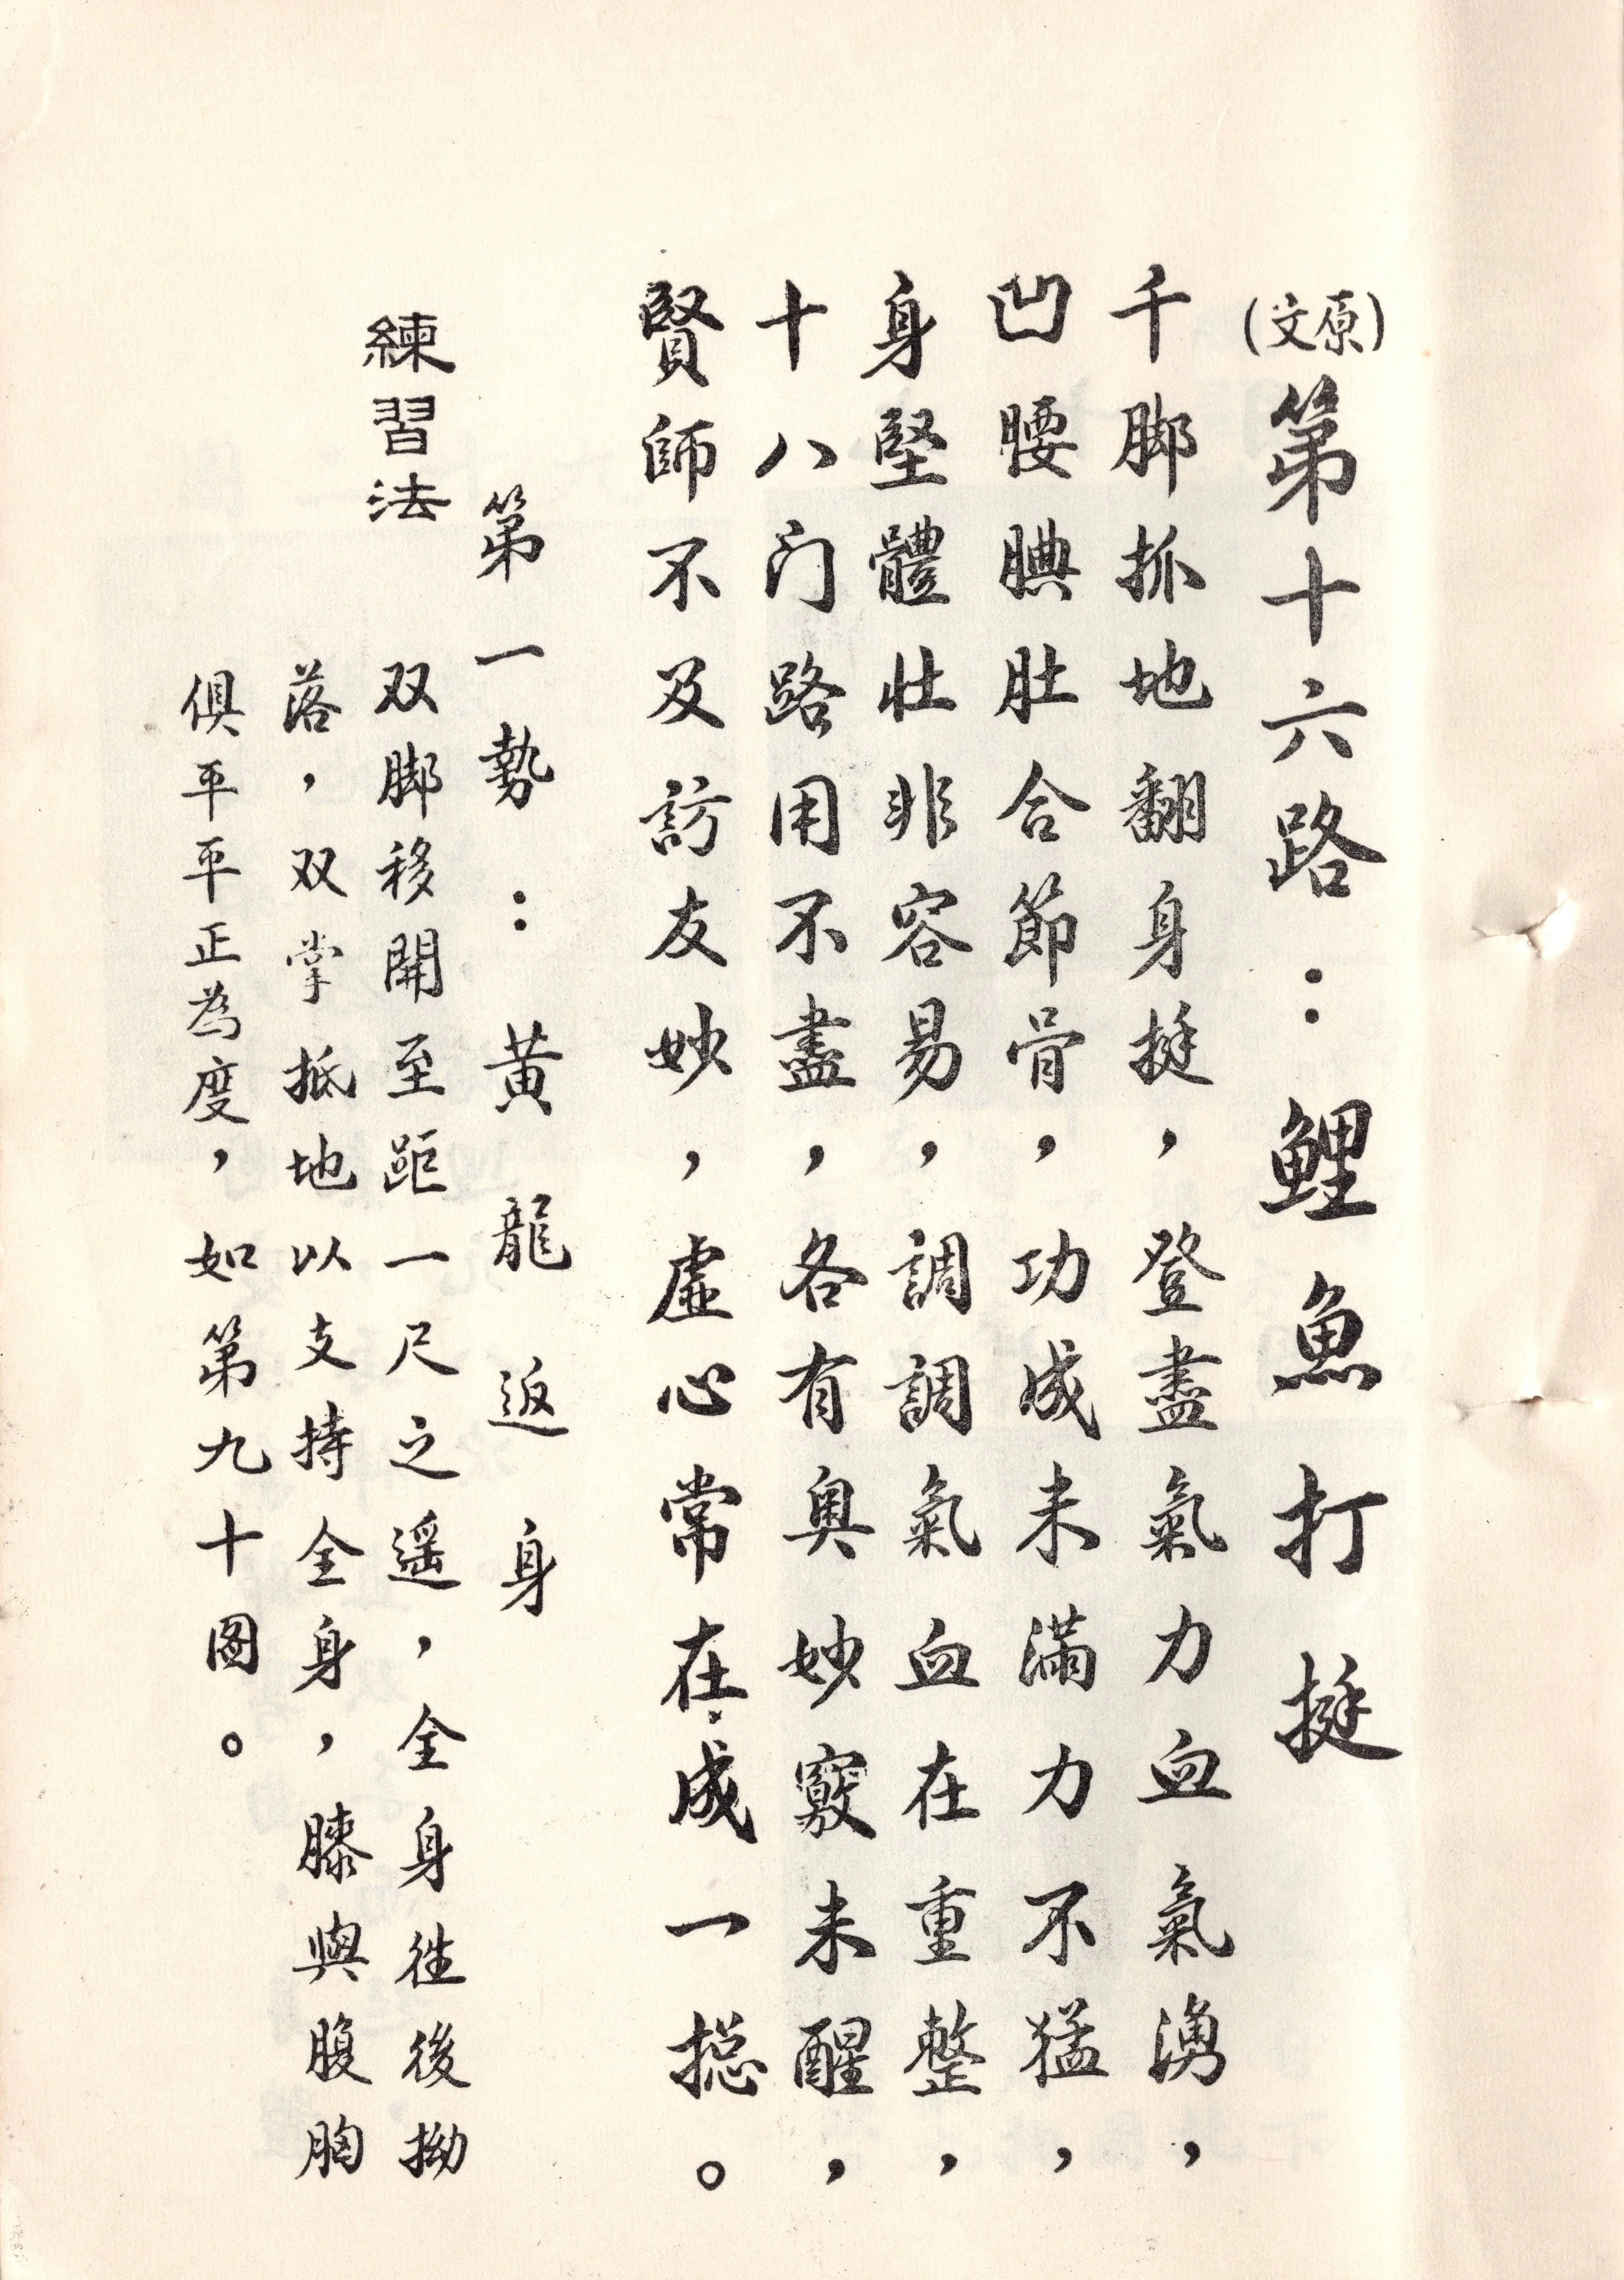 (原文)第十六路：鯉魚打挺
千脚抓地翻身挺，登盡氣力血氣湧，
凹腰腆肚合節骨，功成未滿力不猛，
身堅體壯非容易，調調氣血在重整，
十八门路用不盡，各有奥妙竅未醒，
賢師不及訪友妙，虛心常在成一摠。
第一勢：黄龍返身
練習法 双脚移開至距一尺之遥，全身往後拗
落，双掌抵地以支持全身，膝與腹胸
俱平平正為度，如第九十图。